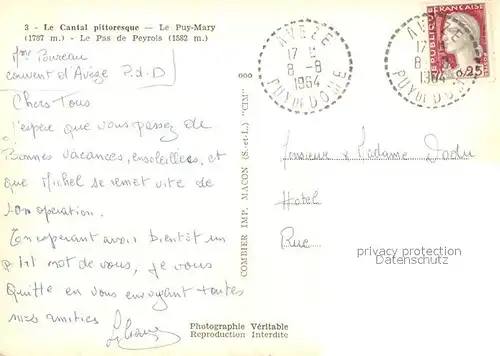 3 - Le Cantal pittoresque — Le Puy-Mary
(1787 m.) - Le Pas de Peyrols (1582 m.)
Mme Poureau
couvent d'Aveze P.d.D
Chers Tous
J'espère que vous passez de
Bonnes vacances, ensoleillées, et
que Michel se remet vite de
son opération.
En esperant avoir bientôt un
p'tit mot de vous, je vous
quitte en vous envoyant toutes
mes amitiés
Liliane
Photographie Véritable
Reproduction Interdite
COMBIER IMP. MACON (S.-et-L.) "CIM"
AVEZE
17 H
8 - 8
1964
PUY DE DOME
AVEZE
17 H
8 - 8
1964
PUY DE DOME
REPUBLIQUE FRANÇAISE
0,25
Monsieur & Madame Dodu
Hotel
Rue
privacy protection
Datenschutz